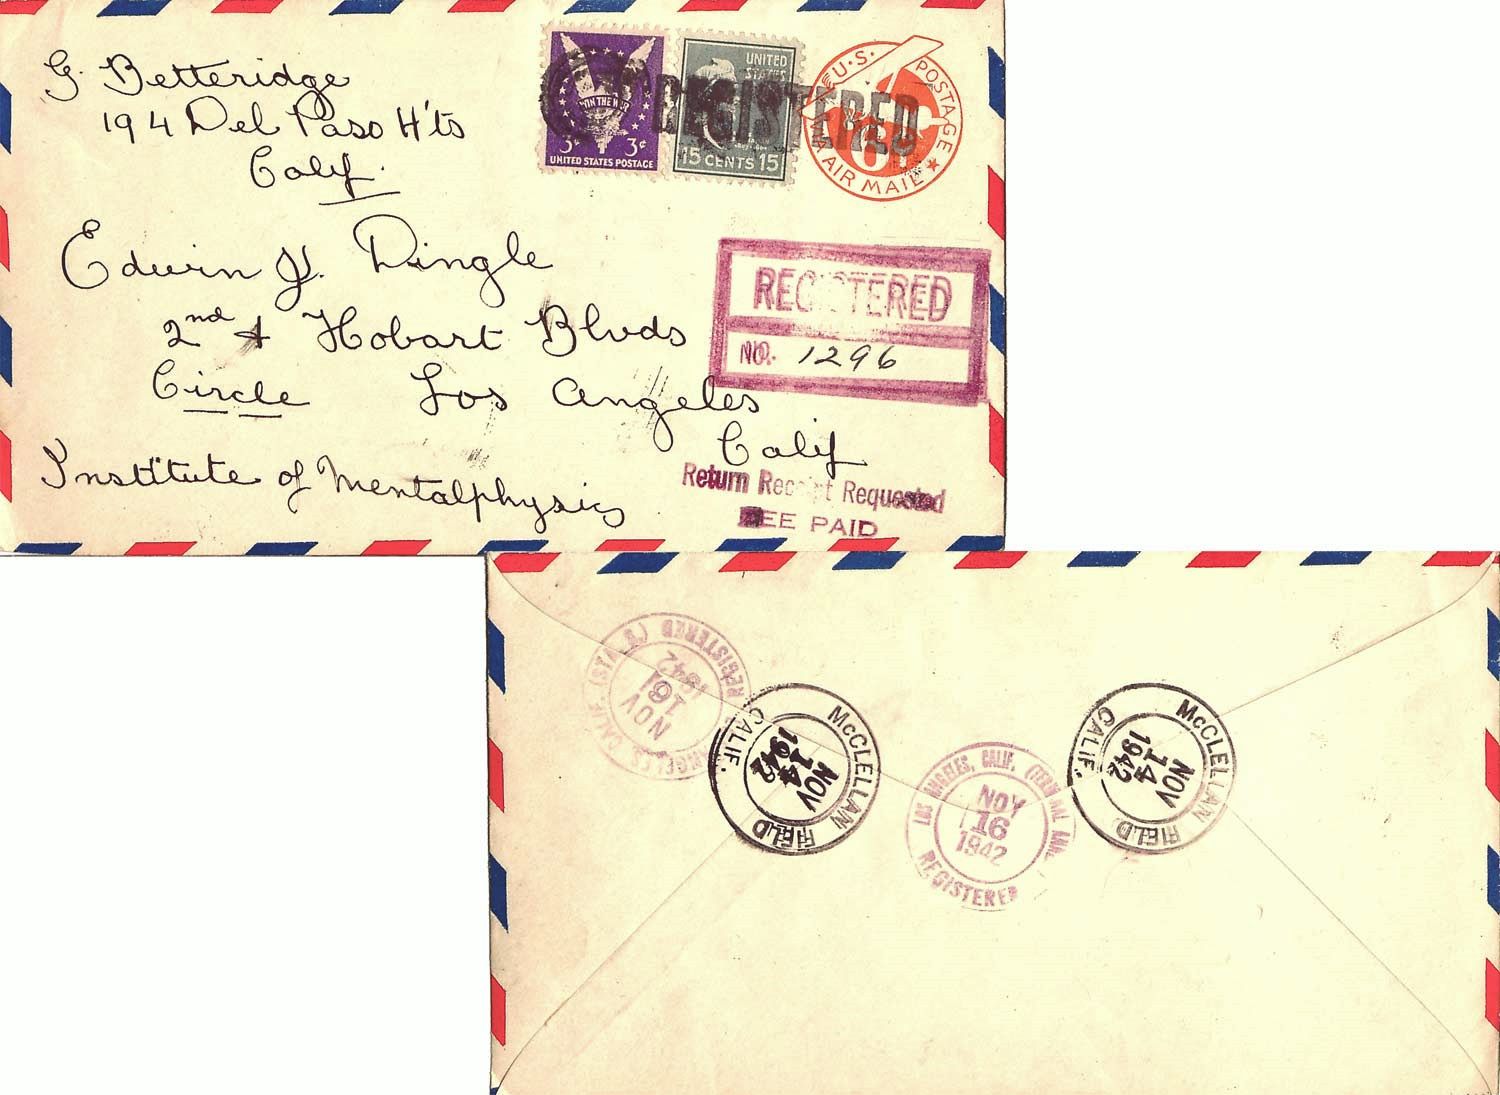 G. Betteridge
194 Del Paso H'ts
Calif.
WIN THE WAR
3¢ 3¢
UNITED STATES POSTAGE
UNITED
STATES
15 CENTS 15
REGISTERED
U.S. POSTAGE
6
VIA AIR MAIL
Edwin J. Dingle
2nd & Hobart Blvds
Circle Los Angeles
Calif
Institute of Mentalphysics
REGISTERED
NO. 1296
Return Receipt Requested
FEE PAID
ANGELES, CALIF. (STA.
REGISTERED
NOV
16
1942
McCLELLAN FIELD
CALIF.
NOV
14
1942
LOS ANGELES, CALIF. (TERMINAL ANNEX
REGISTERED
NOV
16
1942
McCLELLAN FIELD
CALIF.
NOV
14
1942